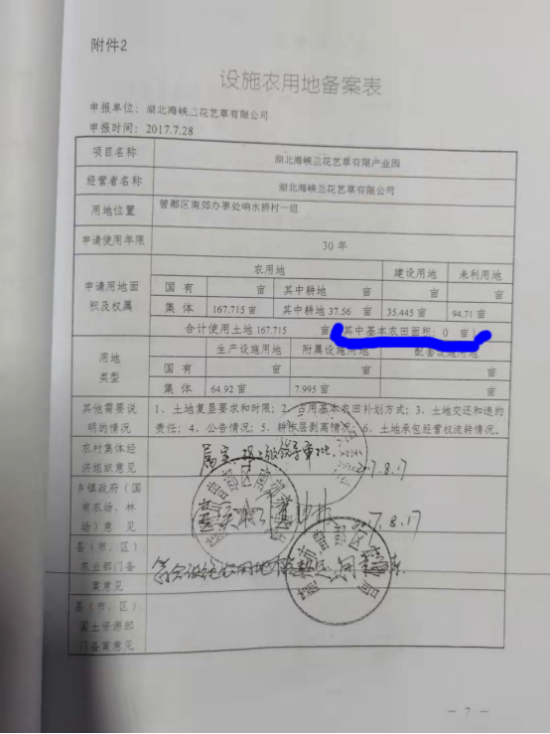 附件2
设施农用地备案表
申报单位：湖北海峡兰花艺草有限公司
申报时间：2017.7.28
项目名称 湖北海峡兰花艺草有限产业园
经营者名称 湖北海峡兰花艺草有限公司
用地位置 曾都区南郊办事处响水桥村一组
申请使用年限 30 年
申请用地面积及权属 农用地 建设用地 未利用地
国 有 亩 其中耕地 亩 亩 亩
集 体 167.715 亩 其中耕地 37.56 亩 35.445 亩 94.71 亩
合计使用土地 167.715 亩（其中基本农田面积：0 亩）
用地类型 生产设施用地 附属设施用地 配套设施用地
国 有 亩
集 体 64.92 亩 7.995 亩
其他需要说明的情况 1、土地复垦要求和时限；2、占用基本农田补划方式；3、土地交还和违约
责任；4、公告情况；5、耕作层剥离情况；6、土地承包经营权流转情况。
农村集体经济组织意见 属实 2017.8.17
乡镇政府（国有农场、林场）意见 2017.8.17
县（市、区）农业部门备案意见 符合设施农用地
县（市、区）国土资源部门备案意见
— 7 —